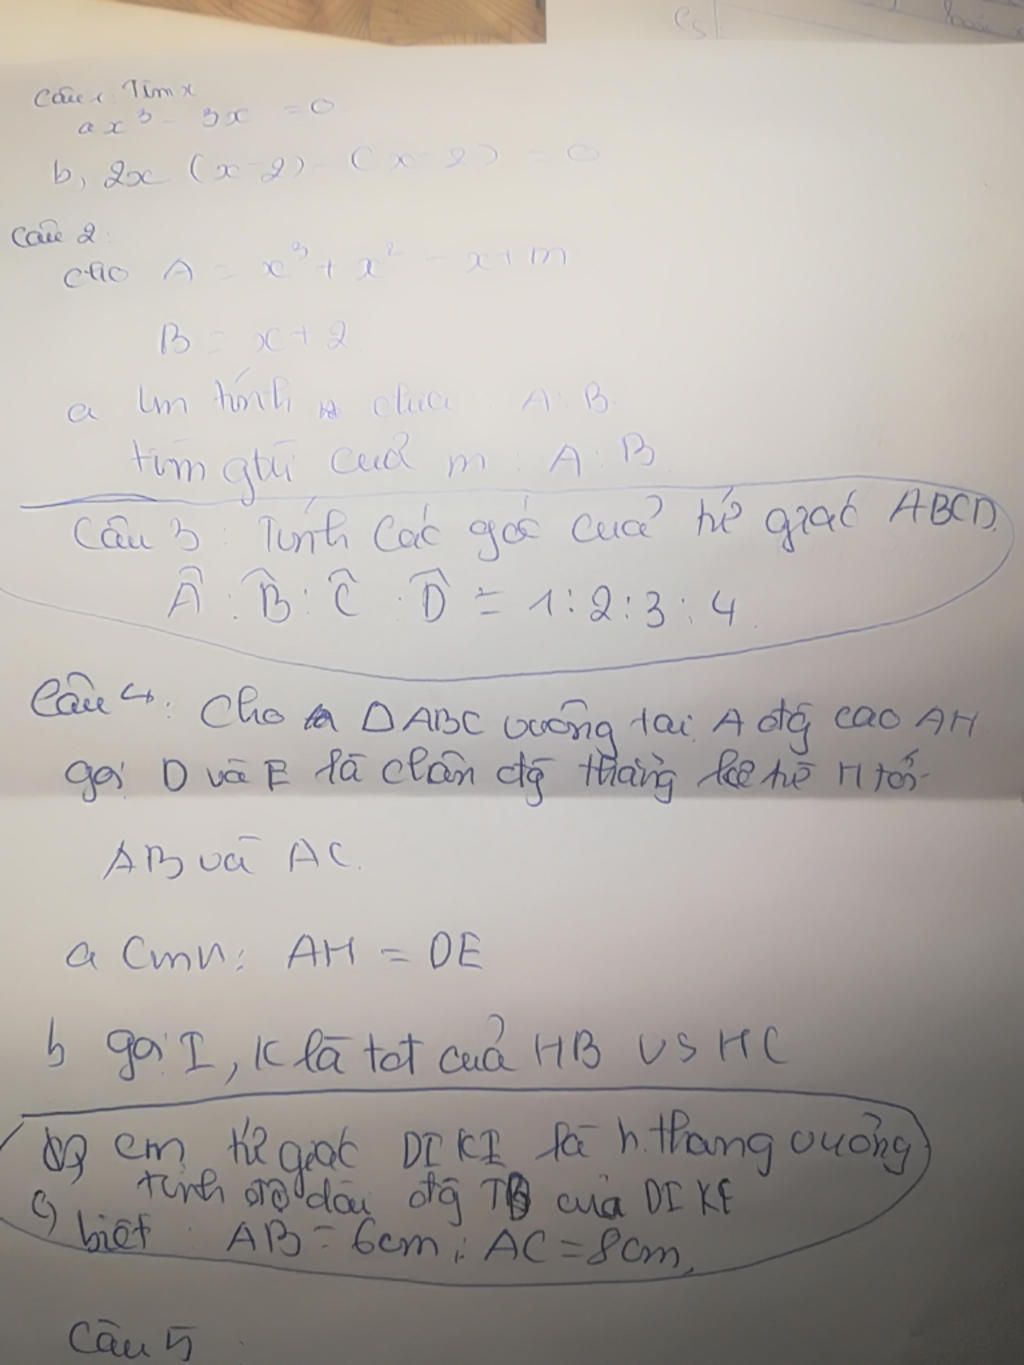 Câu 1: Tìm x
a x³ - 3x = 0
b, 2x (x-2) - (x-2) = 0
Câu 2:
cho A = x³ + x² - x + m
B = x + 2
a tính chia A : B.
tìm gtri của m : A : B
Câu 3: Tính các góc của tứ giác ABCD.
Â : B̂ : Ĉ : D̂ = 1:2:3:4.
Câu 4: Cho Δ ABC vuông tại A đg cao AH
gọi D và E là chân đg thẳng kẻ từ H tới
AB và AC.
a Cmn: AH = DE
b gọi I, K là tđt của HB vs HC
cm tứ giác DIKI là h.thang vuông
c) tính độ dài đg TB của DIKE
biết: AB = 6cm; AC = 8cm.
Câu 5